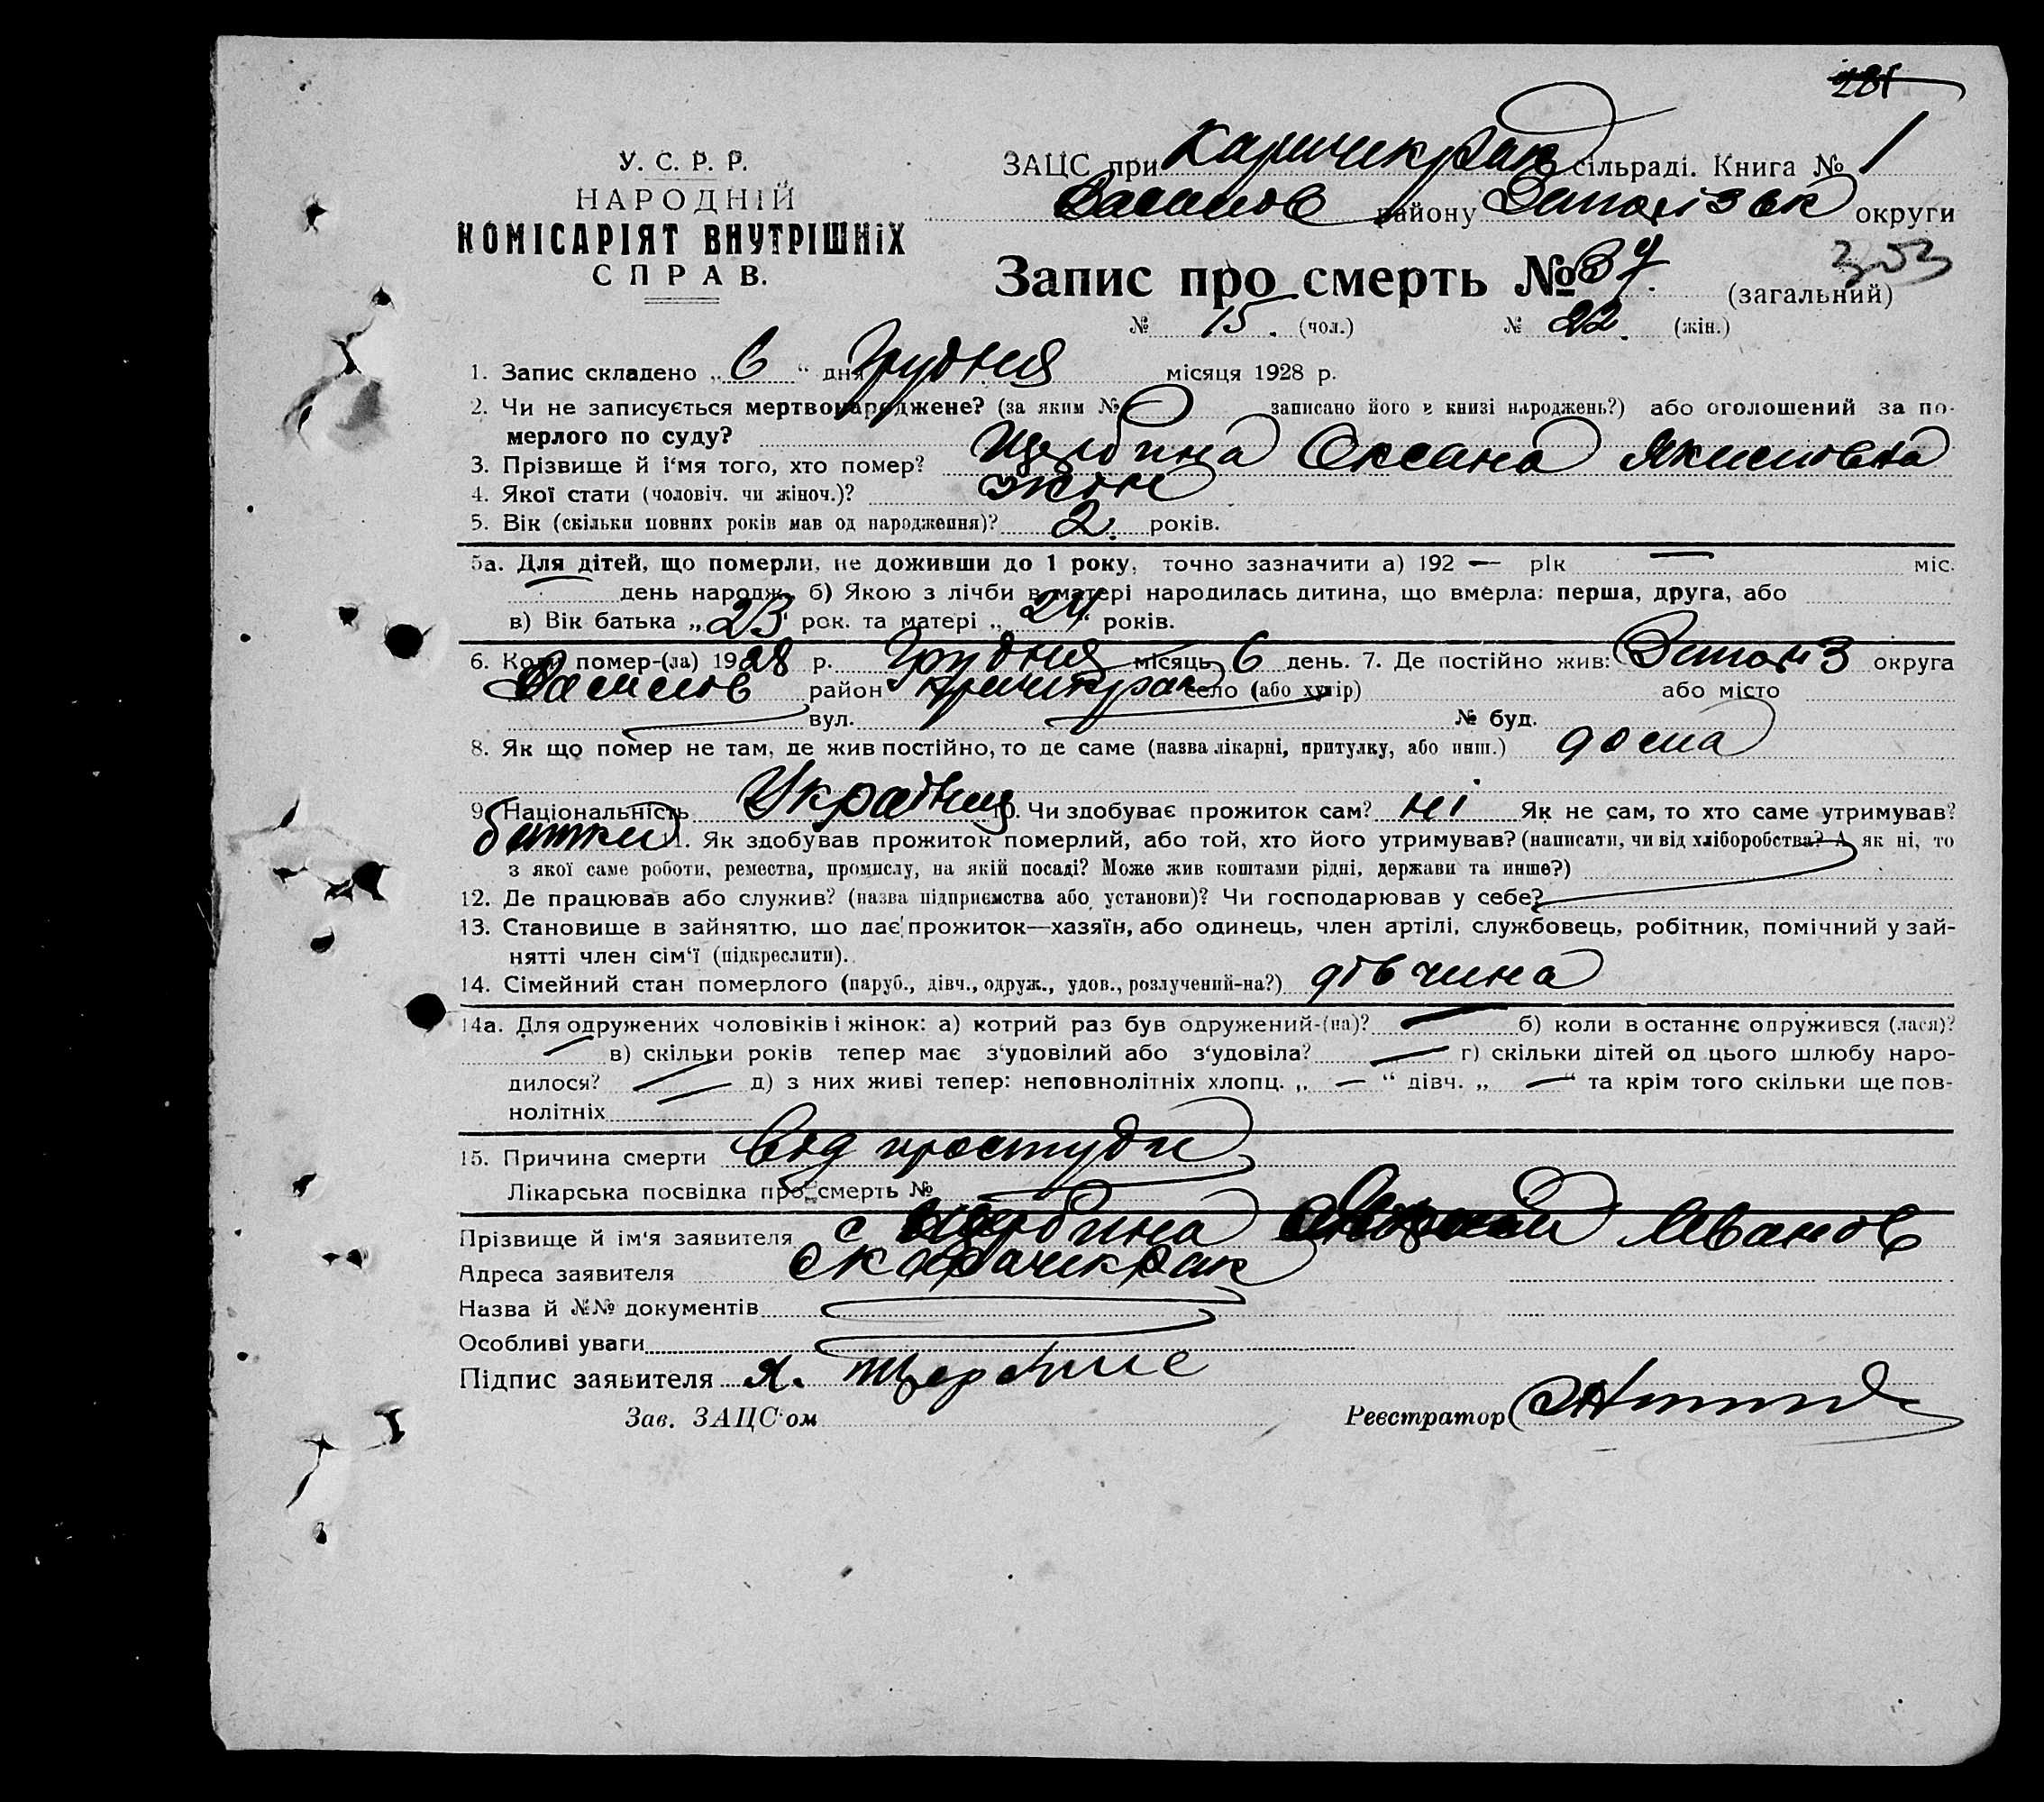 281
У. С. Р. Р.
НАРОДНІЙ
КОМІСАРІЯТ ВНУТРІШНІХ
СПРАВ.
ЗАЦС при Каричекрак сільраді. Книга № 1
Василов району Запоріз ок округи
353
Запис про смерть № 37. (загальний)
№ 15. (чол.) № 22. (жін.)
1. Запис складено „ 6 “ дня Грудня місяця 1928 р.
2. Чи не записується мертвонароджене? (за яким № записано його в книзі народжень?) або оголошений за по-
мерлого по суду?
3. Прізвище й і‘мя того, хто помер? Щербина Оксана Якимовна
4. Якої стати (чоловіч. чи жіноч.)? жін
5. Вік (скільки повних років мав од народження)? 2. років.
5а. Для дітей, що померли, не доживши до 1 року, точно зазначити а) 192 — рік — міс.
— день народж. б) Якою з лічби в матері народилась дитина, що вмерла: перша, друга, або
в) Вік батька „ 23 рок. та матері „ 24 “ років.
6. Коли помер-(ла) 1928 р. Грудня місяць 6 день. 7. Де постійно жив: Запоріз округа
Василов район село (або хутір) або місто
вул. № буд.
8. Як що помер не там, де жив постійно, то де саме (назва лікарні, притулку, або инш.) дома
9. Національність Українц 10. Чи здобуває прожиток сам? ні Як не сам, то хто саме утримував?
батьки 11. Як здобував прожиток померлий, або той, хто його утримував? (написати, чи від хліборобства? А як ні, то
з якої саме роботи, ремества, промислу, на якій посаді? Може жив коштами рідні, держави та инше?)
12. Де працював або служив? (назва підприємства або установи)? Чи господарював у себе?
13. Становище в зайняттю, що дає прожиток—хазяїн, або одинець, член артілі, службовець, робітник, помічний у зай-
нятті член сім‘ї (підкреслити).
14. Сімейний стан померлого (паруб., дівч., одруж., удов., розлучений-на?) дівчина
14а. Для одружених чоловіків і жінок: а) котрий раз був одружений-(на)? — б) коли в останнє одружився (лася)?
— в) скільки років тепер має з‘удовілий або з‘удовіла? — г) скільки дітей од цього шлюбу наро-
дилося? — д) з них живі тепер: неповнолітніх хлопц. „ — “ дівч. „ — “ та крім того скільки ще пов-
нолітніх
15. Причина смерти від простуди
Лікарська посвідка про смерть №
Прізвище й ім‘я заявителя с Щербина Іванов
Адреса заявителя с Карачекрак
Назва й №№ документів
Особливі уваги
Підпис заявителя Я. Щербине
Зав. ЗАЦС‘ом Реєстратор